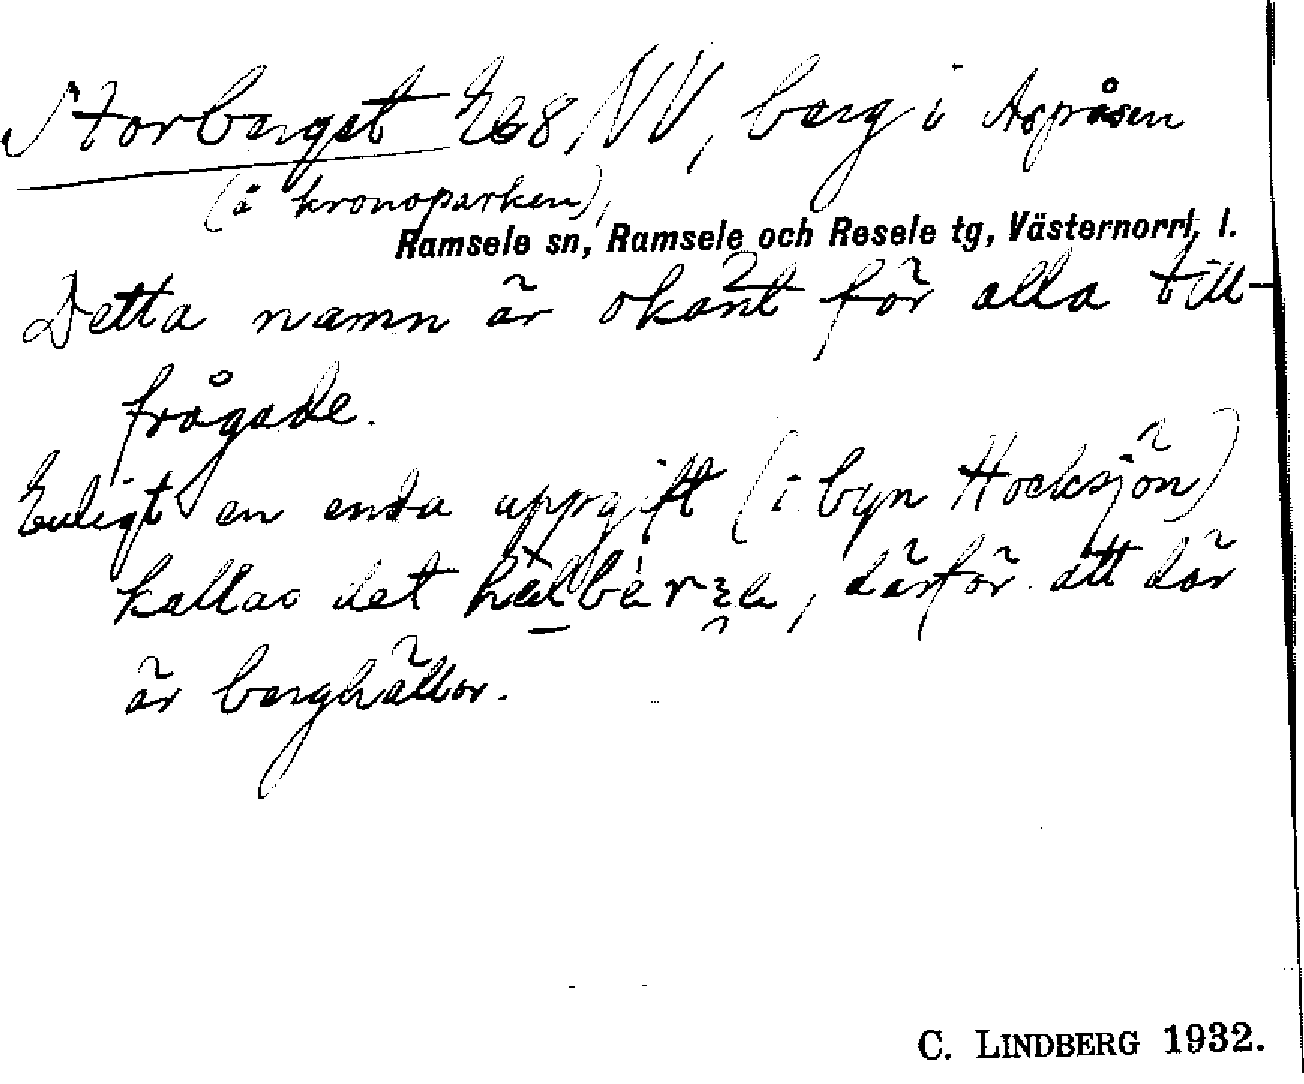 Storberget Eb8, NV, berg i Aspåsen
(å kronoparken),
Ramsele sn, Ramsele och Resele tg, Västernorrl. l.
Detta namn är okänt för alla till-
frågade.
Enligt en enda uppgift (i byn Hocksjön)
kallas det därför att där
är berghällar.
C. LINDBERG 1932.